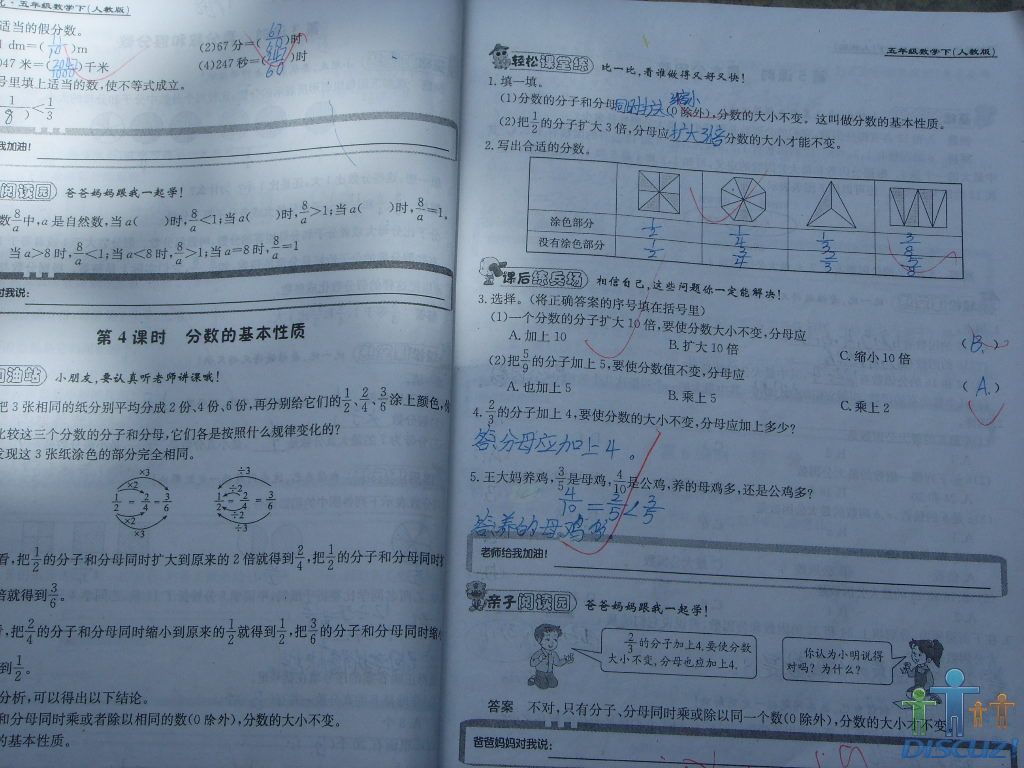 化·五年级数学下(人教版)
适当的假分数。
1 dm=(11/10)m
(2)67分=(67/60)时
047米=( /1000)千米
(4)247秒=( /60)时
号里填上适当的数,使不等式成立。
1/(8)<1/3
我加油!
阅读园 爸爸妈妈跟我一起学!
数8/a中,a是自然数,当a( )时,8/a<1;当a( )时,8/a>1;当a( )时,8/a=1。
当a>8时,8/a<1;当a<8时,8/a>1;当a=8时,8/a=1
对我说:
第4课时 分数的基本性质
加油站 小朋友,要认真听老师讲课哦!
把3张相同的纸分别平均分成2份、4份、6份,再分别给它们的1/2、2/4、3/6涂上颜色,
比较这三个分数的分子和分母,它们各是按照什么规律变化的?
发现这3张纸涂色的部分完全相同。
×3
×2
1/2=2/4=3/6
×2
×3
÷3
÷2
1/2=2/4=3/6
÷2
÷3
看,把1/2的分子和分母同时扩大到原来的2倍就得到2/4,把1/2的分子和分母同时扩
倍就得到3/6。
看,把2/4的分子和分母同时缩小到原来的1/2就得到1/2,把3/6的分子和分母同时缩小
到1/2。
分析,可以得出以下结论。
和分母同时乘或者除以相同的数(0除外),分数的大小不变。
的基本性质。
五年级数学下(人教版)
轻松课堂练 比一比,看谁做得又好又快!
1. 填一填。
(1)分数的分子和分母同时扩大缩小(0除外),分数的大小不变。这叫做分数的基本性质。
(2)把1/2的分子扩大3倍,分母应扩大3倍分数的大小才能不变。
2. 写出合适的分数。
涂色部分 1/2 1/4 1/3 3/8
没有涂色部分 1/2 3/4 2/3
课后练兵场 相信自己,这些问题你一定能解决!
3. 选择。(将正确答案的序号填在括号里)
(1)一个分数的分子扩大10倍,要使分数大小不变,分母应 (B.)
A. 加上10 B. 扩大10倍 C. 缩小10倍
(2)把5/9的分子加上5,要使分数值不变,分母应 (A.)
A. 也加上5 B. 乘上5 C. 乘上2
4. 2/3的分子加上4,要使分数的大小不变,分母应加上多少?
答分母应加上4。
5. 王大妈养鸡,3/5是母鸡,4/10是公鸡,养的母鸡多,还是公鸡多?
4/10=2/5<3/5
答养的母鸡多
老师给我加油!
亲子阅读园 爸爸妈妈跟我一起学!
2/3的分子加上4,要使分数
大小不变,分母也应加上4.
你认为小明说得
对吗?为什么?
答案 不对,只有分子、分母同时乘或除以同一个数(0除外),分数的大小才不变。
爸爸妈妈对我说:
DISCUZ!